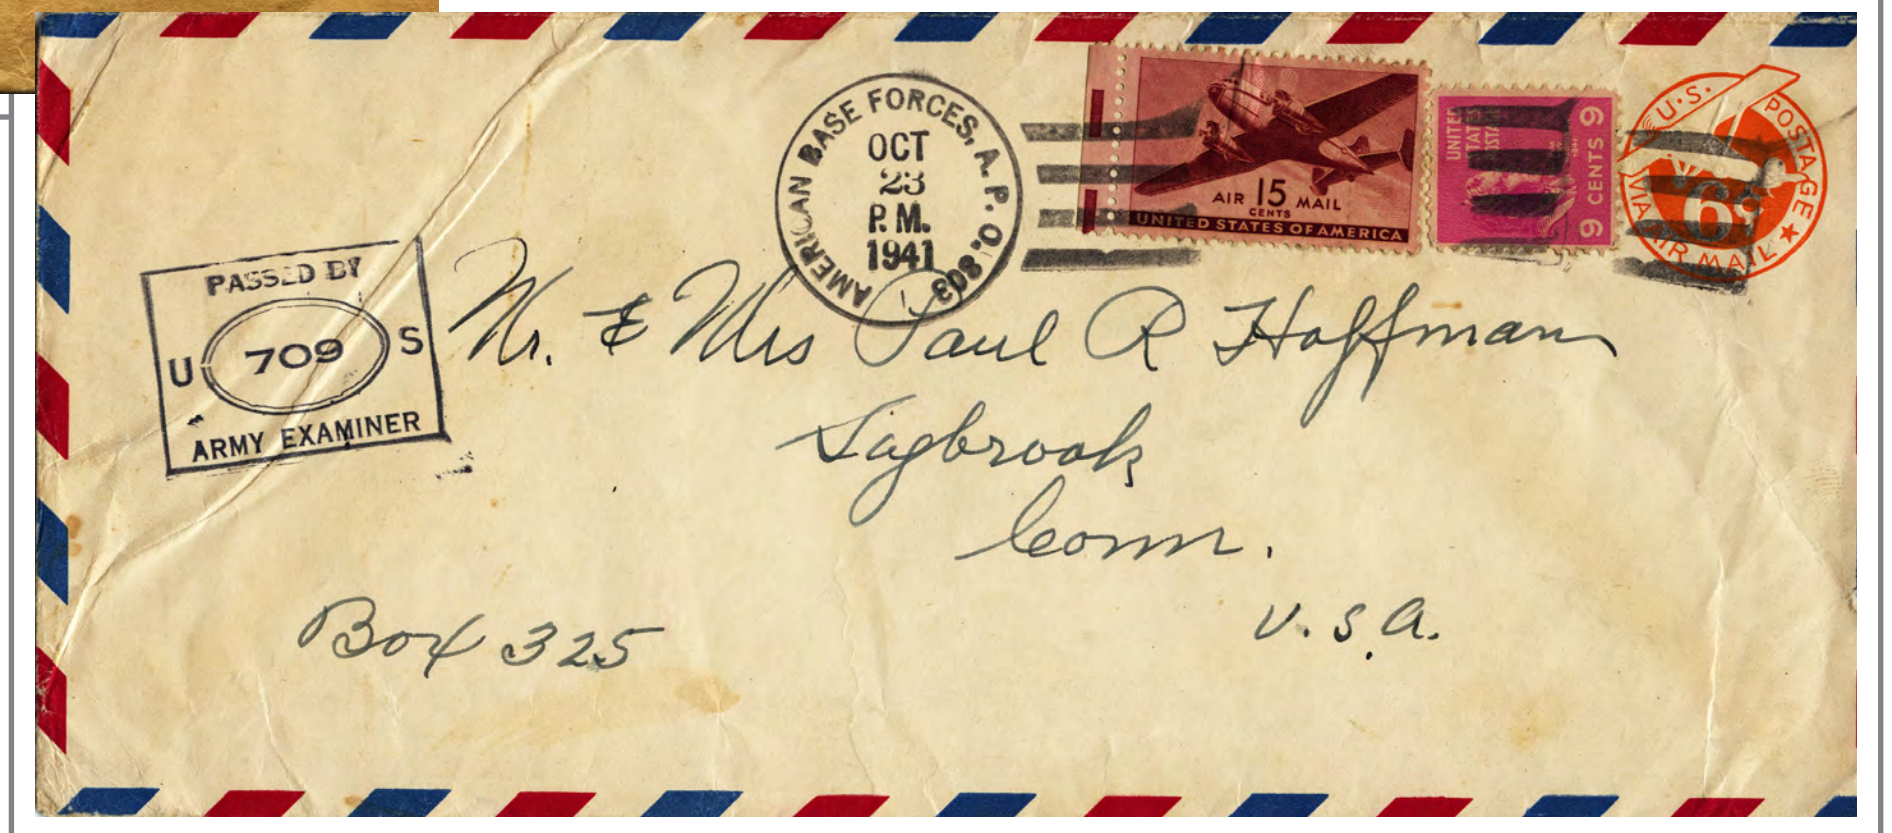 AMERICAN BASE FORCES, A. P. O. 803
OCT
23
P. M.
1941
AIR 15 MAIL
CENTS
UNITED STATES OF AMERICA
UNITED
STATES
POSTA
9 CENTS 9
U.S. POSTAGE
6¢
VIA AIR MAIL
PASSED BY
U 709 S
ARMY EXAMINER
Mr. & Mrs Paul R Hoffman
Saybrook
Conn.
Box 325
U. S. A.